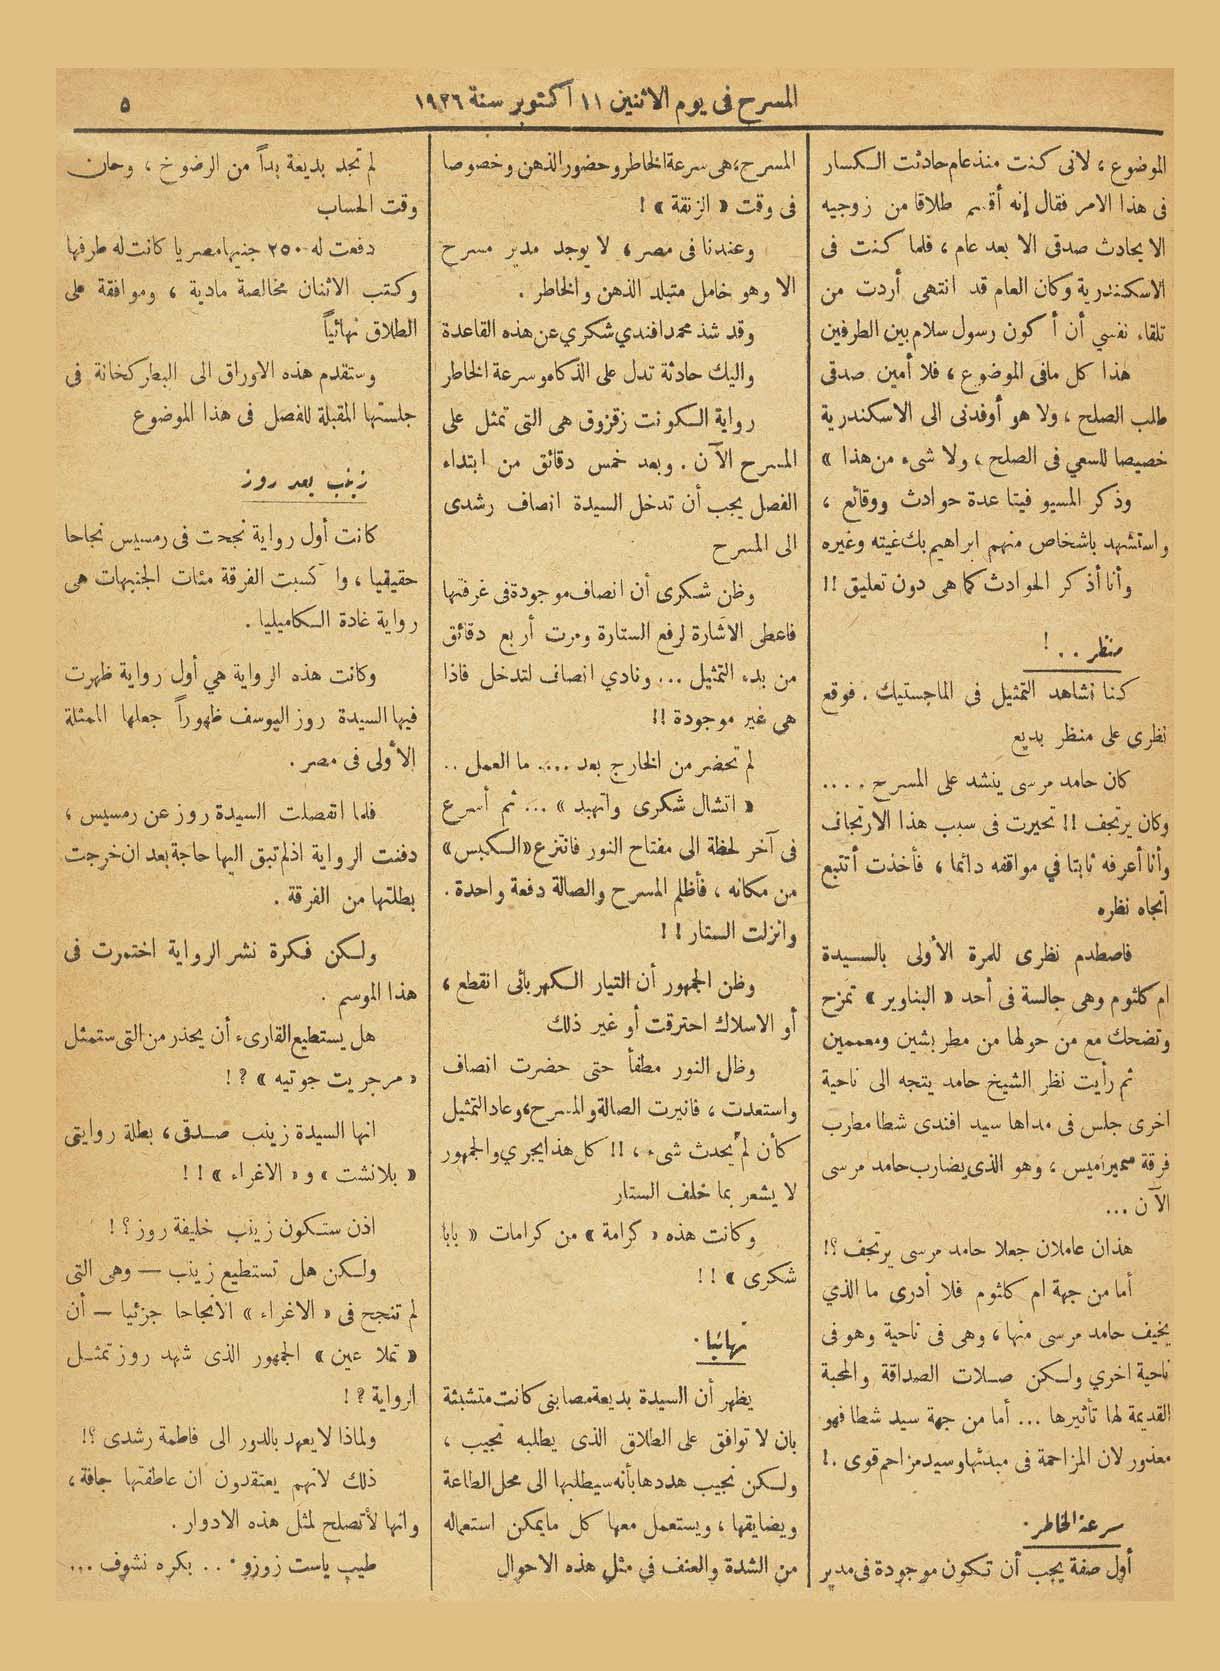 المسرح فى يوم الاثنين ١١ أكتوبر سنة ١٩٢٦
٥
الموضوع ، لانى كنت منذ عام حادثت الكسار
فى هذا الامر فقال إنه أقسم طلاقا من زوجيه
الا يحادث صدقى الا بعد عام ، فلما كنت فى
الاسكندرية وكان العام قد انتهى أردت من
تلقاء نفسي أن أكون رسول سلام بين الطرفين
هذا كل مافى الموضوع ، فلا أمين صدقى
طلب الصلح ، ولا هو أوفدنى الى الاسكندرية
خصيصا للسعي فى الصلح ، ولا شىء من هذا »
وذكر المسيو فيتا عدة حوادث ووقائع ،
واستشهد باشخاص منهم ابراهيم بك غيته وغيره
وأنا أذكر الحوادث كما هى دون تعليق !!
منظر . . !
كنا نشاهد التمثيل فى الماجستيك . فوقع
نظرى على منظر بديع
كان حامد مرسى ينشد على المسرح ....
وكان يرتجف !! تحيرت فى سبب هذا الارتجاف
وأنا أعرفه ثابتا في مواقفه دائما ، فأخذت أتتبع
اتجاه نظره
فاصطدم نظرى للمرة الأولى بالسيدة
ام كلثوم وهى جالسة فى أحد « البناوير » تمزح
وتضحك مع من حولها من مطربشين ومعممين
ثم رأيت نظر الشيخ حامد يتجه الى ناحية
اخرى جلس فى مداها سيد افندى شطا مطرب
فرقة سميراميس ، وهو الذى يضارب حامد مرسى
الآن ...
هذان عاملان جعلا حامد مرسى يرتجف ؟!
أما من جهة ام كلثوم فلا أدرى ما الذي
يخيف حامد مرسى منها ، وهى فى ناحية وهو فى
ناحية اخري ولكن صلات الصداقة والمحبة
القديمة لها تأثيرها ... أما من جهة سيد شطا فهو
معذور لان المزاحمة فى مبدئها وسيد مزاحم قوى .!
سرعة الخاطر .
أول صفة يجب أن تكون موجودة فى مدير
المسرح ، هى سرعة الخاطر وحضور الذهن وخصوصا
فى وقت « الزنقة » !
وعندنا فى مصر ، لا يوجد مدير مسرح
الا وهو خامل متبلد الذهن والخاطر .
وقد شذ محمد افندي شكري عن هذه القاعدة
واليك حادثة تدل على الذكاء وسرعة الخاطر
رواية الكونت زقزوق هى التى تمثل على
المسرح الآن . وبعد خمس دقائق من ابتداء
الفصل يجب أن تدخل السيدة انصاف رشدى
الى المسرح
وظن شكرى أن انصاف موجودة فى غرفتها
فاعطى الاشارة لرفع الستارة ومرت أربع دقائق
من بدء التمثيل ... ونادي انصاف لتدخل فاذا
هى غير موجودة !!
لم تحضر من الخارج بعد .... ما العمل ..
« اتشال شكرى واتهبد » ... ثم أسرع
فى آخر لحظة الى مفتاح النور فانتزع « الكبس »
من مكانه ، فأظلم المسرح والصالة دفعة واحدة .
وانزلت الستار ! !
وظن الجمهور أن التيار الكهربائى انقطع ،
أو الاسلاك احترقت أو غير ذلك
وظل النور مطفأ حتى حضرت انصاف
واستعدت ، فانيرت الصالة والمسرح ، وعاد التمثيل
كأن لم يحدث شىء ، !! كل هذا يجري والجمهور
لا يشعر بما خلف الستار
وكانت هذه « كرامة » من كرامات « بابا
شكرى » ! !
نهائيا .
يظهر أن السيدة بديعة مصابنى كانت متشبثة
بان لا توافق على الطلاق الذى يطلبه نجيب ،
ولكن نجيب هددها بأنه سيطلبها الى محل الطاعة
ويضايقها ، ويستعمل معها كل مايمكن استعماله
من الشدة والعنف في مثل هذه الاحوال
لم تجد بديعة بداً من الرضوخ ، وحان
وقت الحساب
دفعت له ٢٥٠ جنيها مصريا كانت له طرفها
وكتب الاثنان مخالصة مادية ، وموافقة على
الطلاق نهائياً
وستقدم هذه الاوراق الى البطركخانة فى
جلستها المقبلة للفصل فى هذا الموضوع
زينب بعد روز
كانت أول رواية نجحت فى رمسيس نجاحا
حقيقيا ، واكسبت الفرقة مئات الجنيهات هى
رواية غادة الكاميليا .
وكانت هذه الرواية هي أول رواية ظهرت
فيها السيدة روز اليوسف ظهوراً جعلها الممثلة
الأولى فى مصر .
فلما انفصلت السيدة روز عن رمسيس ،
دفنت الرواية اذ لم تبق اليها حاجة بعد ان خرجت
بطلتها من الفرقة .
ولكن فكرة نشر الرواية اختمرت فى
هذا الموسم .
هل يستطيع القارىء أن يحذر من التى ستمثل
« مرجريت جوتيه » ؟ !
انها السيدة زينب صدقى ، بطلة روايتى
« بلانشت » و « الاغراء » ! !
اذن ستكون زينب خليفة روز ؟ !
ولكن هل تستطيع زينب — وهى التى
لم تنجح فى « الاغراء » الا نجاحا جزئيا — أن
« تملا عين » الجمهور الذى شهد روز تمثل
الرواية ؟ !
ولماذا لا يعهد بالدور الى فاطمة رشدى ؟!
ذلك لانهم يعتقدون ان عاطفتها جافة ،
وانها لا تصلح لمثل هذه الادوار .
طيب ياست زوزو . . . بكره نشوف ...